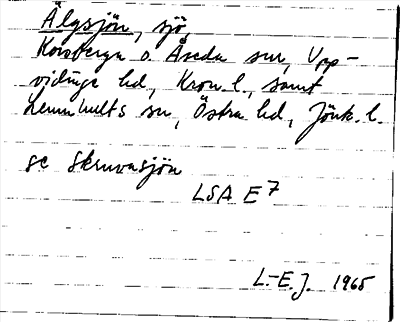 Älgsjön, sjö
Korsberga o. Åseda sn, Upp-
vidinge hd, Kron. l., samt
Lemnhults sn, Östra hd, Jönk. l.
se Skruvasjön
LSA E 7
L.-E. J. 1965